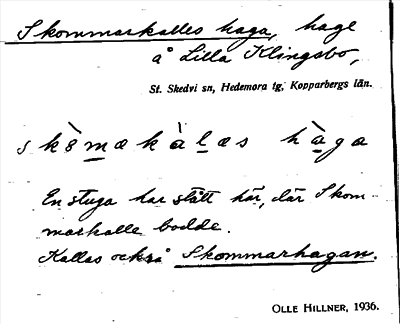 Skommarkalles haga, hage
å Lilla Klingsbo,
St. Skedvi sn, Hedemora tg, Kopparbergs län.
skò̀m̲ækàl̲æs hà̲ga
En stuga har stått här, där Skom-
markalle bodde.
Kallas också Skommarhagan.
OLLE HILLNER, 1936.